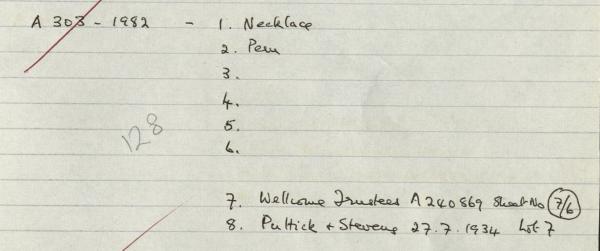 A 303 - 1982 - 1. Necklace
2. Peru
3.
4.
5.
6.
128
7. Wellcome Trustees A240869 Sheet No 7/6
8. Puttick + Stevens 27.7.1934 Lot 7